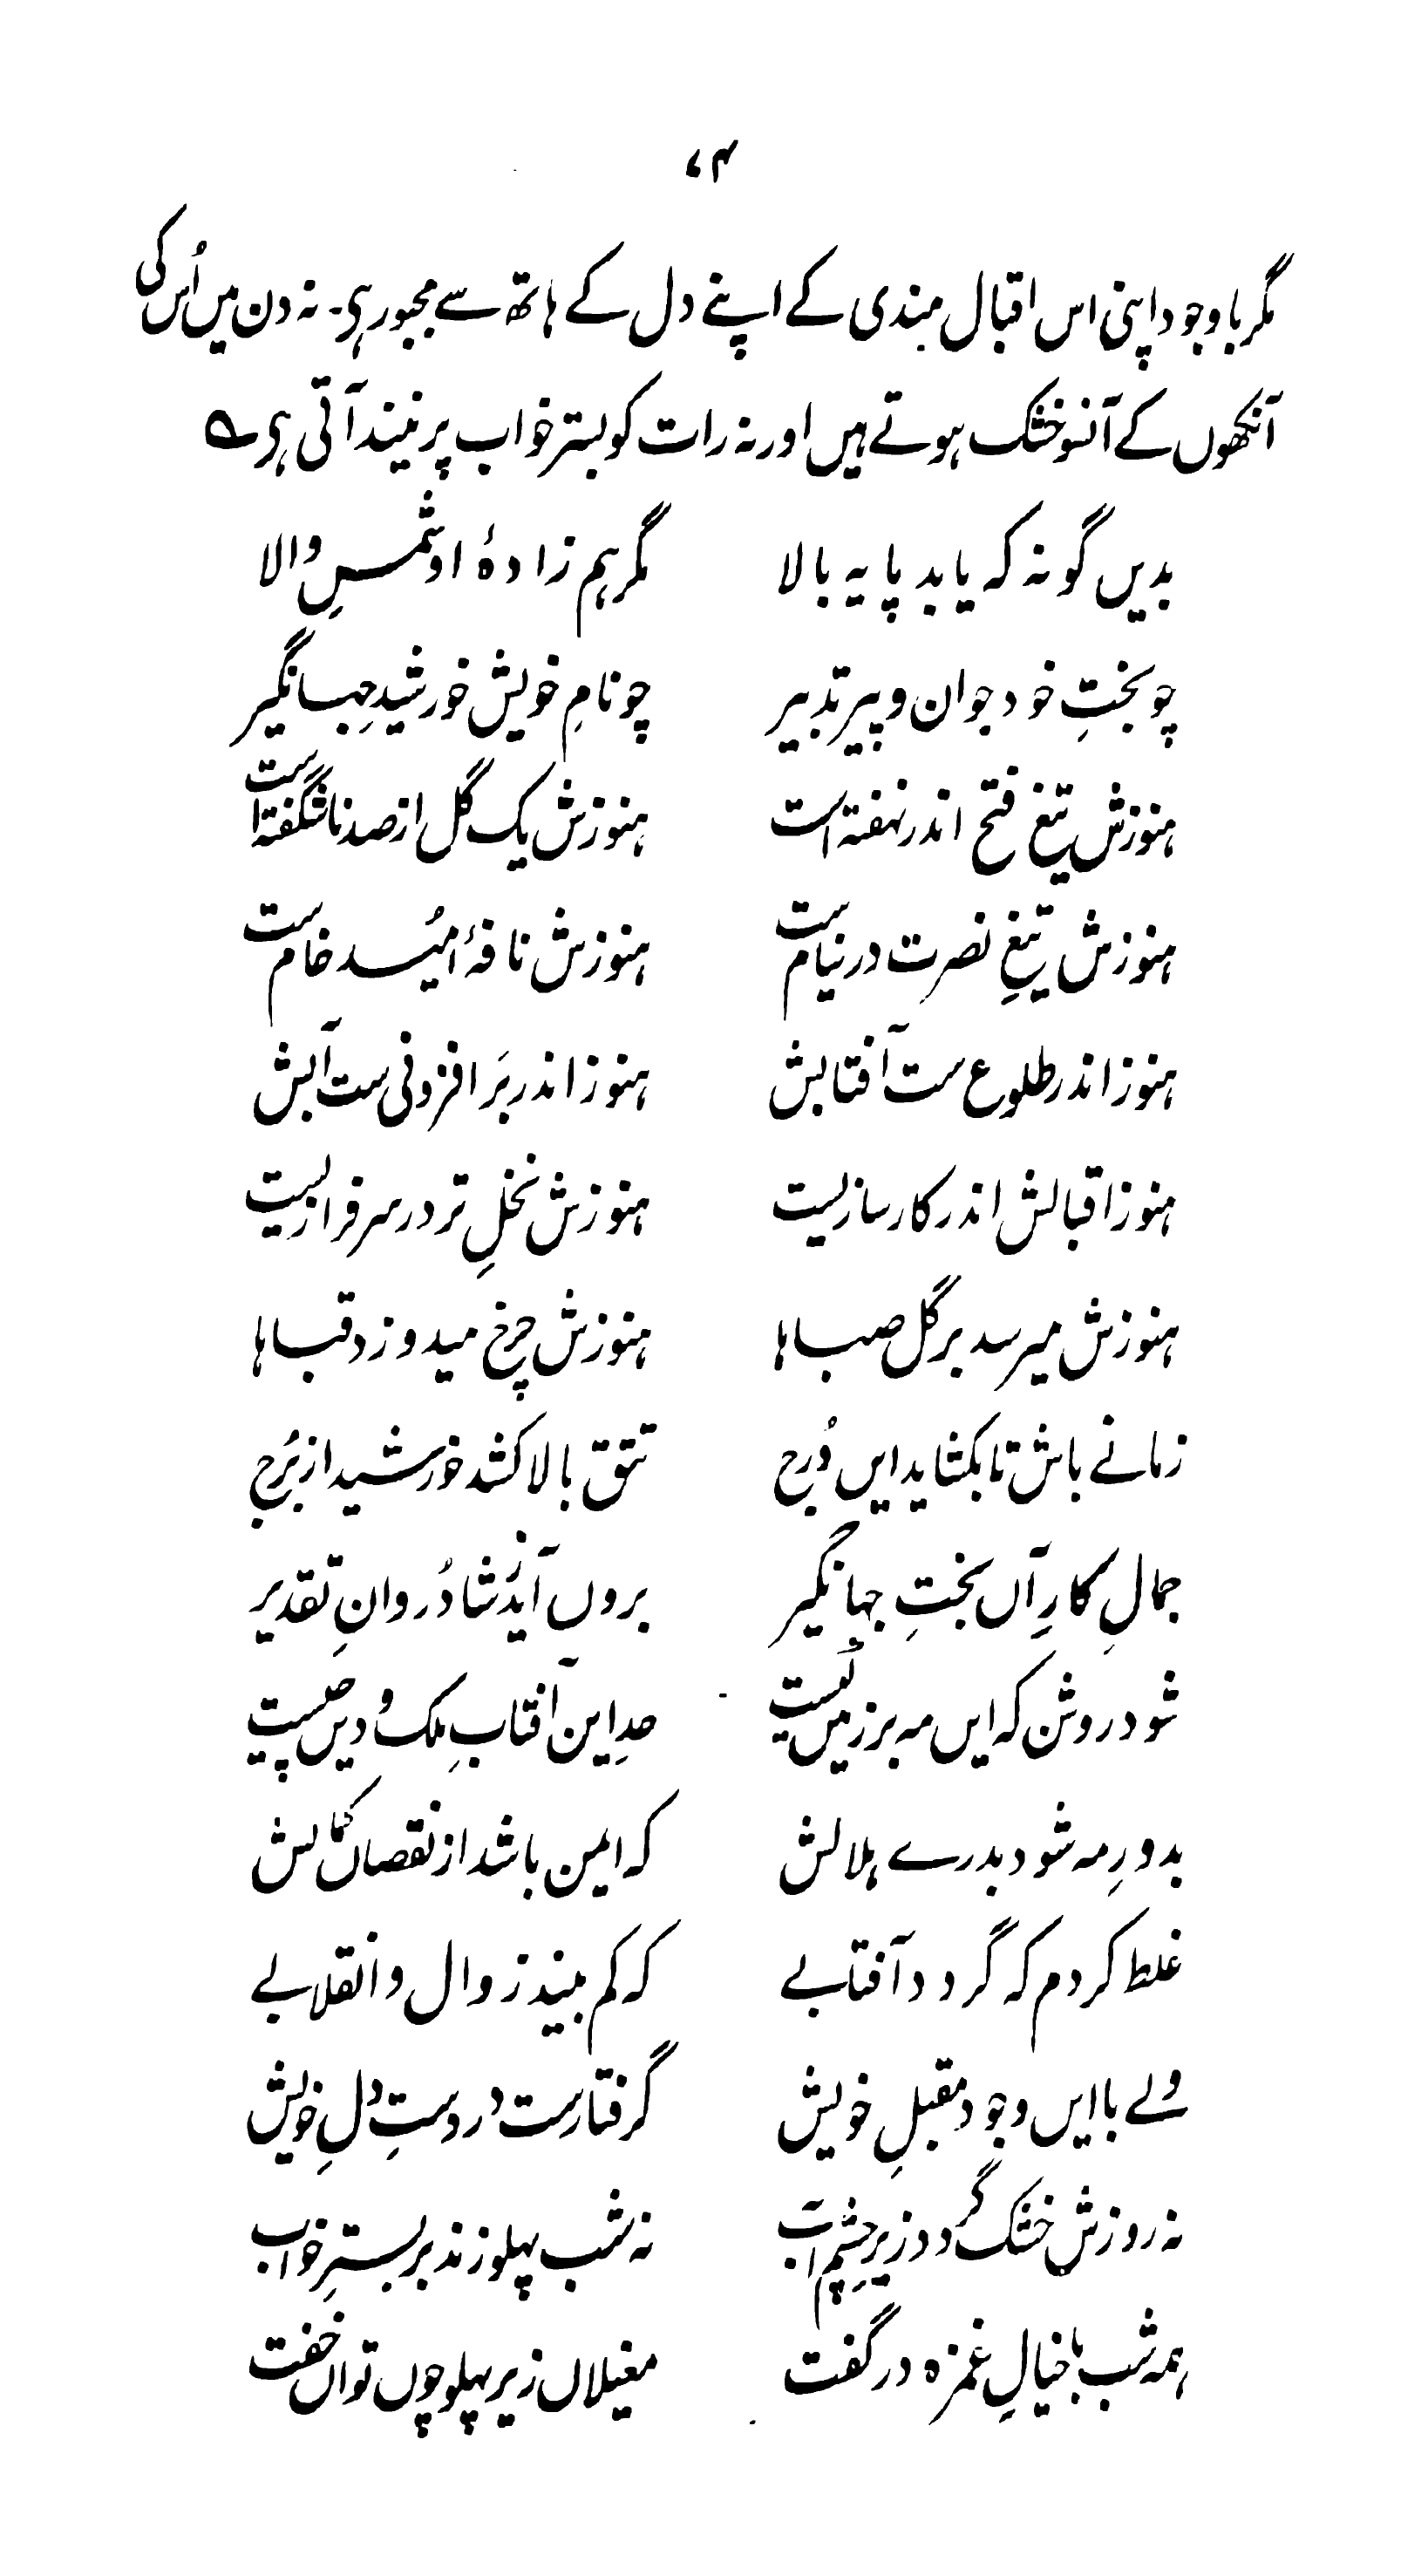 ۷۴
مگر باوجود اپنی اس اقبال مندی کے اپنے دل کے ہاتھ سے مجبور ہی۔ نہ دن میں اُس کی
آنکھوں کے آنسو خشک ہوتے ہیں اور نہ رات کو بستر خواب پر نیند آتی ہی ؎
بدیں گونہ کہ یابد پایہ بالا مگر ہم زادۂ او شمسِ والا
چو بختِ خود جوان و پیر تدبیر چو نامِ خویش خورشیدِ جہانگیر
ہنوزش تیغ فتح اندر نہفتہ است ہنوزش یک گل از صد ناشگفتہ است
ہنوزش تیغِ نصرت در نیام ست ہنوزش نافۂ امُید خام ست
ہنوز اندر طلوع ست آفتابش ہنوز اندر بَر افزونی ست آبش
ہنوز اقبالش اندر کارسازیست ہنوزش نخلِ تر در سرفرازیست
ہنوزش میرسد بر گل صباہا ہنوزش چرخ میدوزد قباہا
زمانے باش تا بکشاید ایں دُرج تتق بالا کشد خورشید از بُرج
جمالِ کارِ آں بختِ جہانگیر بروں آید ز شادُروانِ تقدیر
شود روشن کہ ایں مہ بر زمیں کیست حدِ این آفتابِ ملک و دیں چیست
بدورِ مہ شود بدرے ہلالش کہ ایمن باشد از نقصاں کمالش
غلط کردم کہ گردد آفتابے کہ کم بیند زوال و انقلابے
ولے با ایں وجود مقبلِ خویش گرفتارست در دستِ دلِ خویش
نہ روزش خشک گردد زیرِ چشم آب نہ شب پہلو زند بر بسترِ خواب
ہمہ شب با خیالِ غمزہ در گفت مغیلاں زیر پہلو چوں تواں خفت